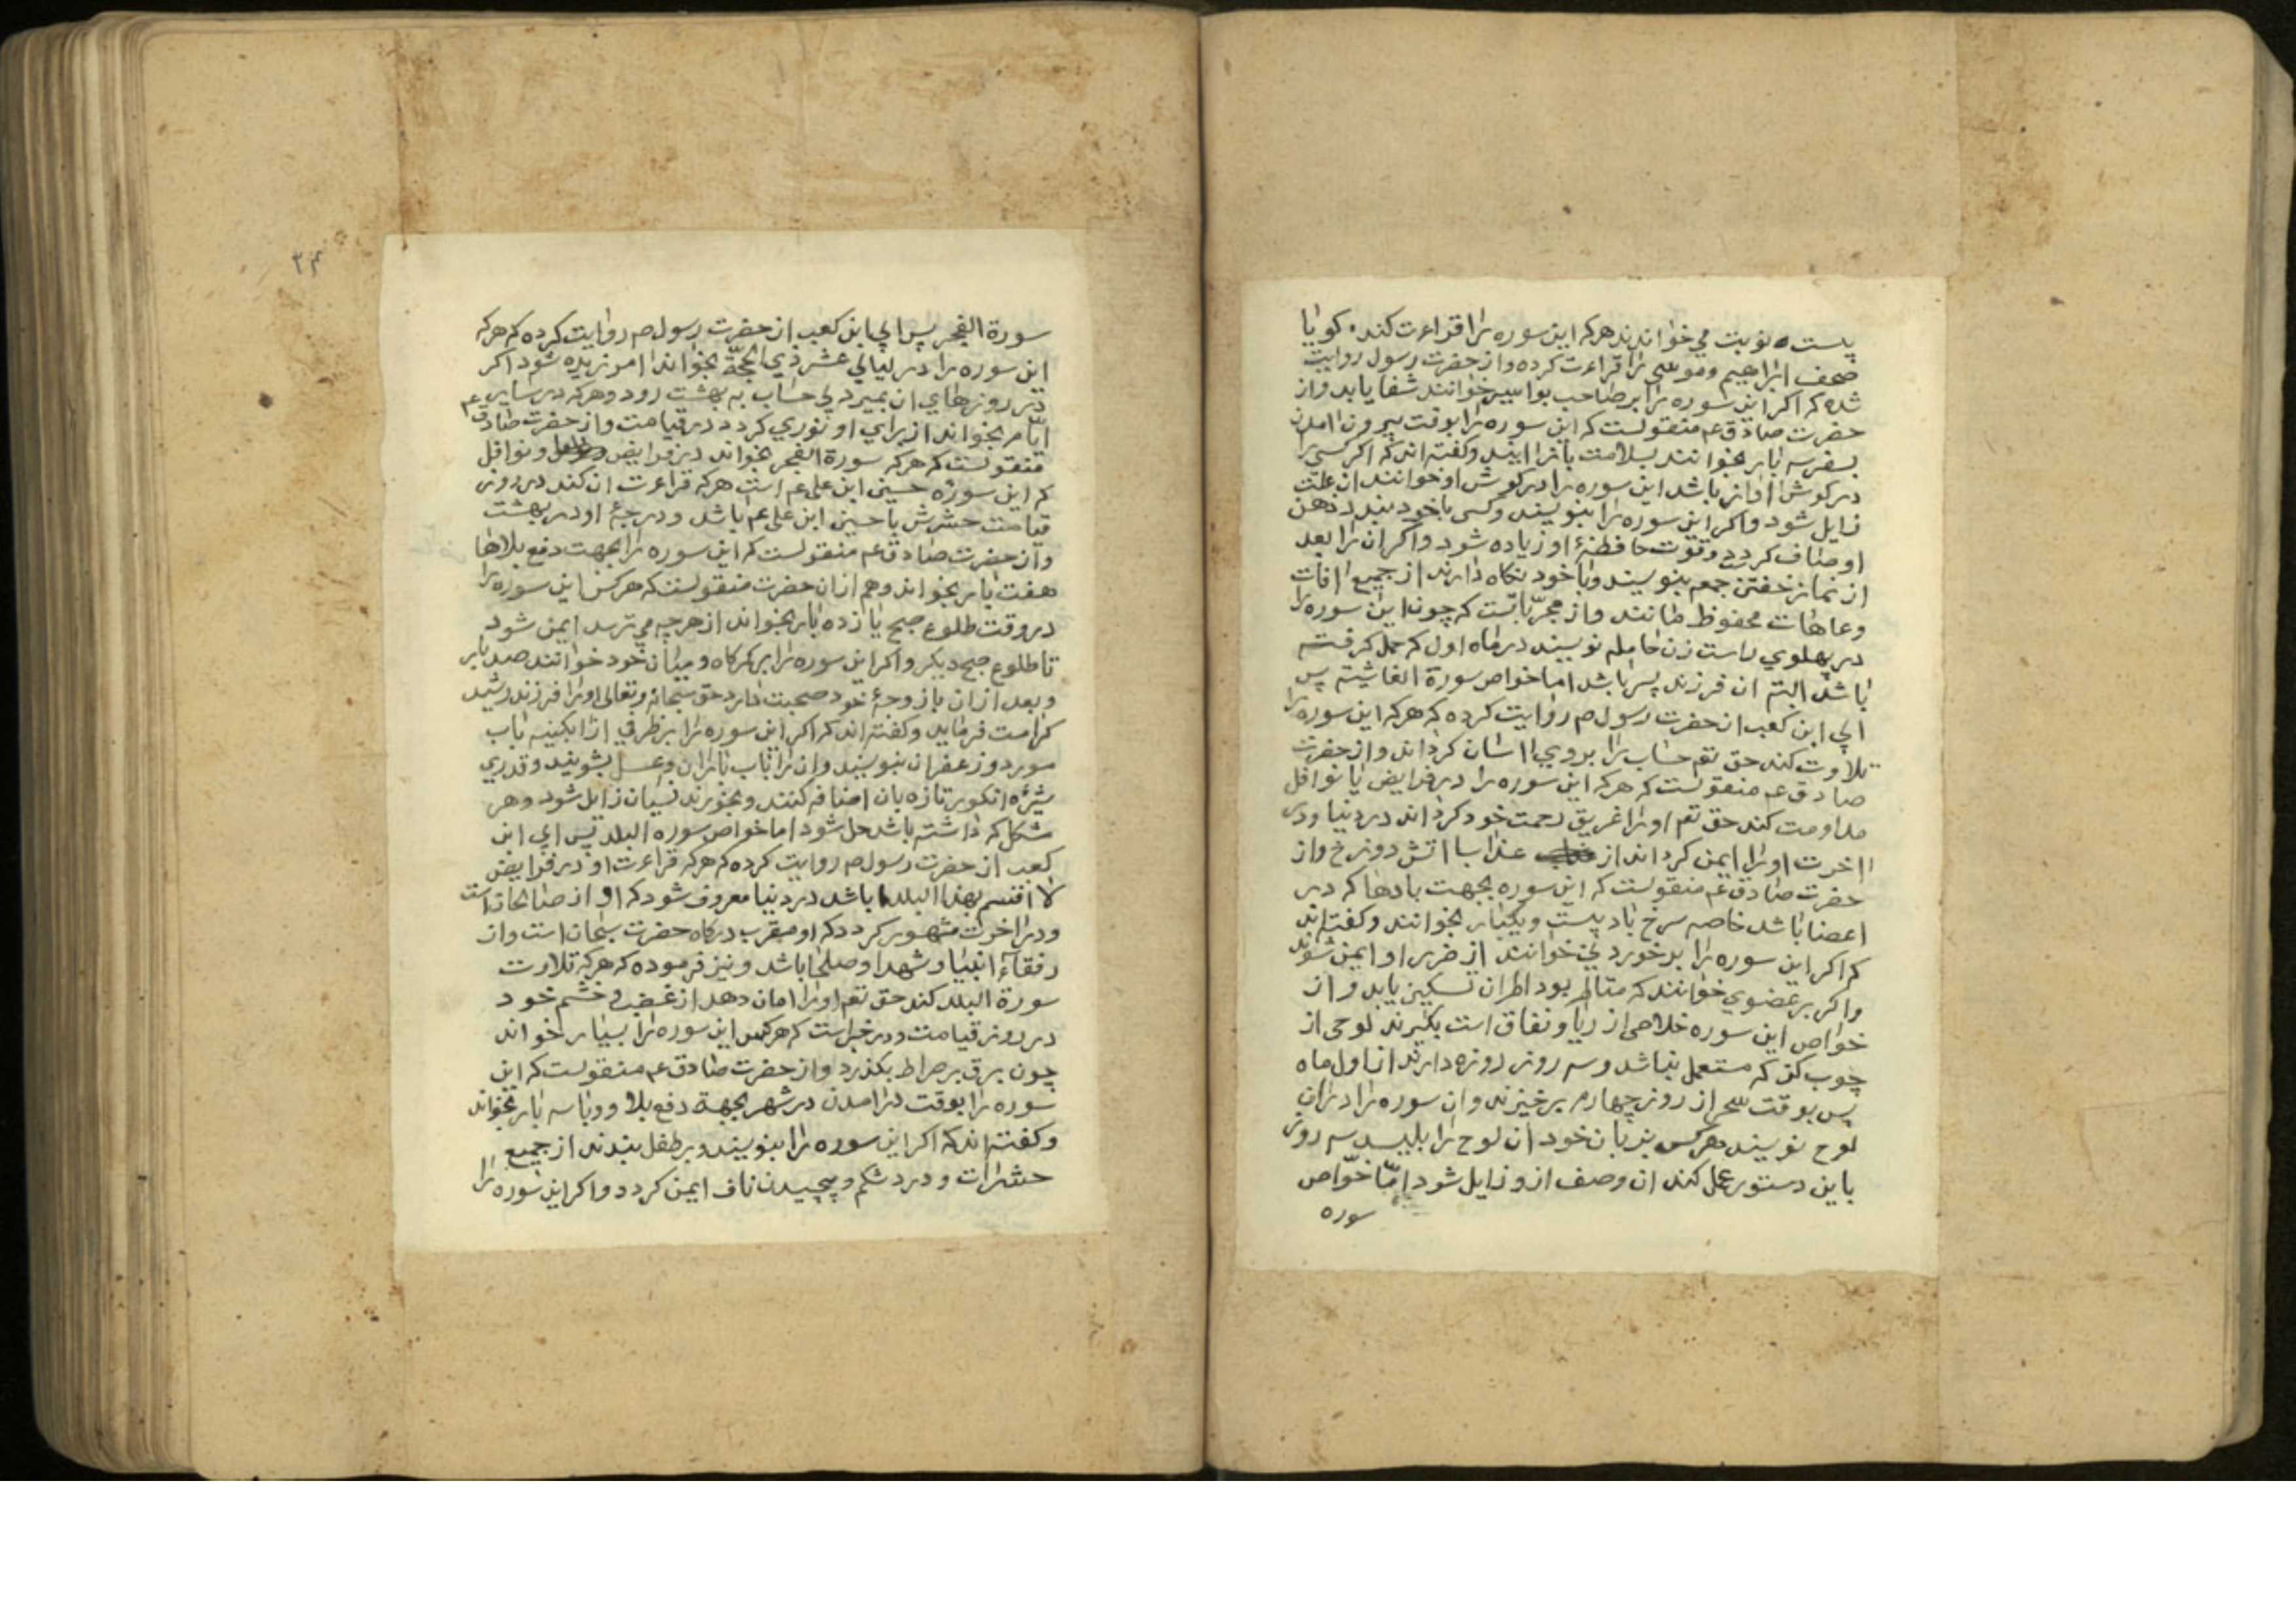 پست نوبت مي خوانند هرکه این سوره را قراءت کند کویا
صحف ابراهیم وموسی را قراءت کرده واز حضرت رسول روایت
شده که اکر این سوره را بر صاحب بواسیر خوانند شفا یابد واز
حضرت صادق عم منقولست که این سوره را بوقت بیرون امدن
بسفر سه بار بخوانند بسلامت باز ایند وکفته اند که اکر کسی را
در کوش اواز باشد این سوره را در کوش او خوانند ان علت
زایل شود واکر این سوره را بنویسند وکسی باخود بندد ذهن
او صاف کردد وقوت حافظهٔ او زیاده شود واکر ان را بعد
از نماز خفتن جمعه بنویسند وبا خود نکاه دارند از جمیع افات
وعاهات محفوظ مانند واز مجرّباتست که چون این سوره را
در پهلوي راست زن حامله نویسند در ماه اول که حمل کرفته
باشد البته ان فرزند پسر باشد اما خواص سورة الغاشیة پس
ابي ابن کعب از حضرت رسول ص روایت کرده که هرکه این سوره را
تلاوت کند حق تعم حساب را بروي اسان کرداند واز حضرت
صادق عم منقولست که هرکه این سوره را در فرایض یا نوافل
مداومت کند حق تعم اورا غریق رحمت خود کرداند در دنیا ودر
اخرت اورا ایمن کرداند از عذاب اتش دوزخ واز
حضرت صادق عم منقولست که این سوره بجهت بادها که در
اعضا باشد خاصه سرخ باد پست ویکبار بخوانند وکفته اند
که اکر این سوره را بر خوردني خوانند از ضرر او ایمن شوند
واکر بر عضوي خوانند که متالم بود الم ان تسکین یابد واز
خواص این سوره خلاصی از ریا ونفاق است بکیرند لوحی از
چوب کز که مستعمل نباشد وسه روز روزه دارند از اول ماه
پس بوقت سحر از روز چهارم برخیزند وان سوره را دران
لوح نویسند هرکس بزبان خود ان لوح را بلیسد سه روز
باین دستور عمل کند ان وصف ازو زایل شود امّا خوّاص
سوره
سورة الفجر پس ابي ابن کعب از حضرت رسول ص روایت کرده که هرکه
این سوره را در لیالي عشر ذي الحجّة بخواند امرزیده شود اکر
در روزهاي ان بمیرد بي حساب به بهشت رود وهرکه در سایر
ایّام بخواند از براي او نوري کردد در قیامت واز حضرت صادق عم
منقولست که هرکه سورة الفجر بخواند در فرایض ونوافل
که این سوره حسین ابن علی عم است هرکه قراءت ان کند در روز
قیامت حشرش با حسین ابن علی عم باشد ودرجهٔ او در بهشت
واز حضرت صادق عم منقولست که این سوره را بجهت دفع بلاها
هفت بار بخواند وهم ازان حضرت منقولست که هرکس این سوره را
در وقت طلوع صبح یازده بار بخواند از هرچه مي ترسد ایمن شود
تا طلوع صبح دیکر واکر این سوره را بر کمرکاه ومیان خود خوانند صد بار
وبعد ازان با زوجهٔ خود صحبت دارد حق سبحانه وتعالی اورا فرزند رشید
کرامت فرماید وکفته اند که اکر این سوره را بر ظرفي از ابکینه باب
مورد وزعفران بنویسند وان را باب باران وعسل بشویند وقدري
شیرهٔ انکور تازه بان اضافه کنند وبخورند نسیان زایل شود وهر
مشکل که داشته باشد حل شود اما خواص سوره البلد پس ابي ابن
کعب از حضرت رسول ص روایت کرده که هرکه قراءت او در فرایض
لا اقسم بهذا البلد باشد در دنیا معروف شود که او از صالحانست
ودر اخرت مشهور کردد که او مقرب درکاه حضرت سبحان است واز
رفقاء انبیا وشهدا وصلحا باشد ونیز فرموده که هرکه تلاوت
سورة البلد کند حق تعم اورا امان دهد از غضب وخشم خود
در روز قیامت ودر خبر است که هرکس این سوره را بسیار خواند
چون برق بر صراط بکذرد واز حضرت صادق عم منقولست که این
سوره را بوقت درامدن در شهر بجهة دفع بلا ووبا سه بار بخواند
وکفته اند که اکر این سوره را بنویسند وبر طفل بندند از جمیع
حشرات ودرد شکم وپیچیدن ناف ایمن کردد واکر این سوره را